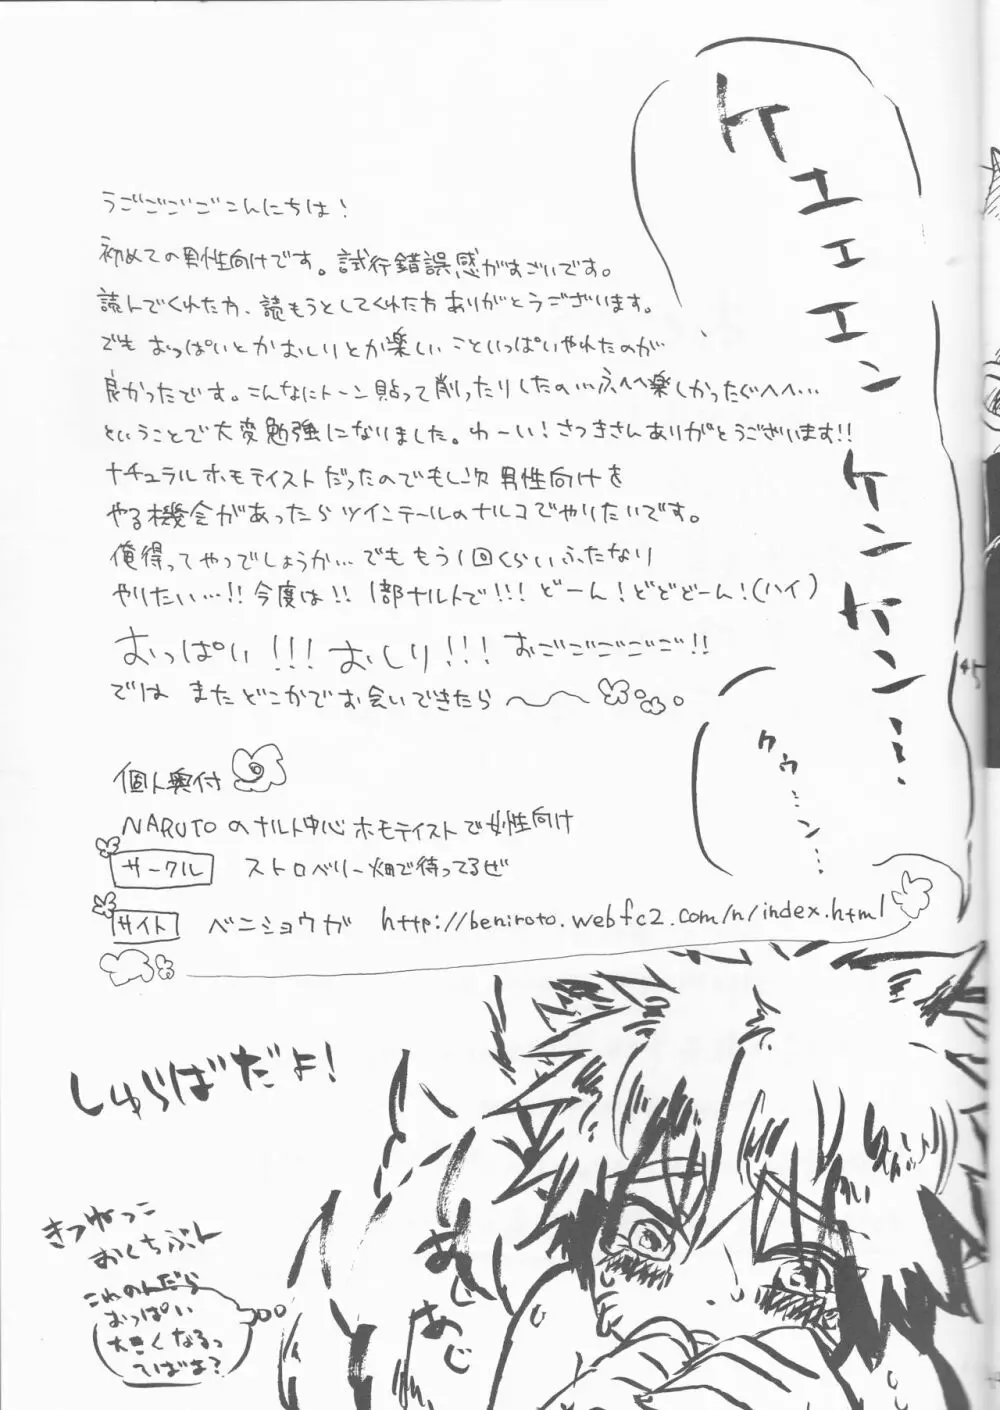 ケエエエン
ケンケン…
クウ…ン…
うごごごごこんにちは!
初めての男性向けです。試行錯誤感がすごいです。
読んでくれた方、読もうとしてくれた方ありがとうございます。
でも おっぱいとかおしりとか楽しいこといっぱいやれたのが
良かったです。こんなにトーン貼って削ったりしたの…ふへへ楽しかったぐへへ…
ということで大変勉強になりました。わーい!さつきさんありがとうございます!!
ナチュラルホモテイストだったのでもし次男性向けを
やる機会があったらツインテールのナルコでやりたいです。
俺得ってやつでしょうか…でも もう1回くらいふたなり
やりたい…!!今度は!!1部ナルトで!!!どーん!どどどーん!(ハイ)
おっぱい!!!おしり!!!おごごごごご!!
では またどこかでお会いできたら〜
個人奥付
NARUTOのナルト中心ホモテイストで女性向け
サークル ストロベリー畑で待ってるぜ
サイト ベニショウガ http://beniroto.webfc2.com/n/index.html
しゅらばだよ!
きつねっこ
おくちぶしー
これのんだら
おっぱい
大きくなるっ
てばよ?
あじ
あじ
45